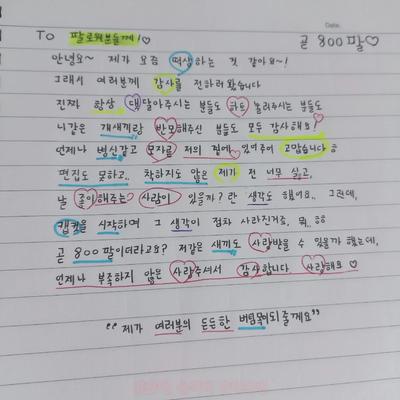 Date.
TO 팔로워분들께!♡ 곧 800팔♡
안녕요~ 제가 요즘 떡상하는 것 같아요~!
그래서 여러분께 감사를 전하러왔습니다
진짜 항상 댓달아주시는 분들도 하트 눌러주시는 분들도
니같은 개새끼랑 반모해주신 분들도 모두 감사해요!♡
언제나 병신같고 모자른 저의 곁에 있어주어 고맙습니다ㅎ
편집도 못하고.. 착하지도 않은 제가 전 너무 싫고,
날 좋아해주는 사람이 있을까? 란 생각도 했어요.. 그런데,
캡컷을 시작하며 그 생각이 점차 사라진거죠, 뭐..ㅎ
곧 800팔이더라고요? 저같은 새끼도 사랑받을 수 있을까 했는데,
언제나 부족하지 않은 사랑주셔서 감사합니다. 사랑해요♡
"제가 여러분의 든든한 버팀목이되줄게요"